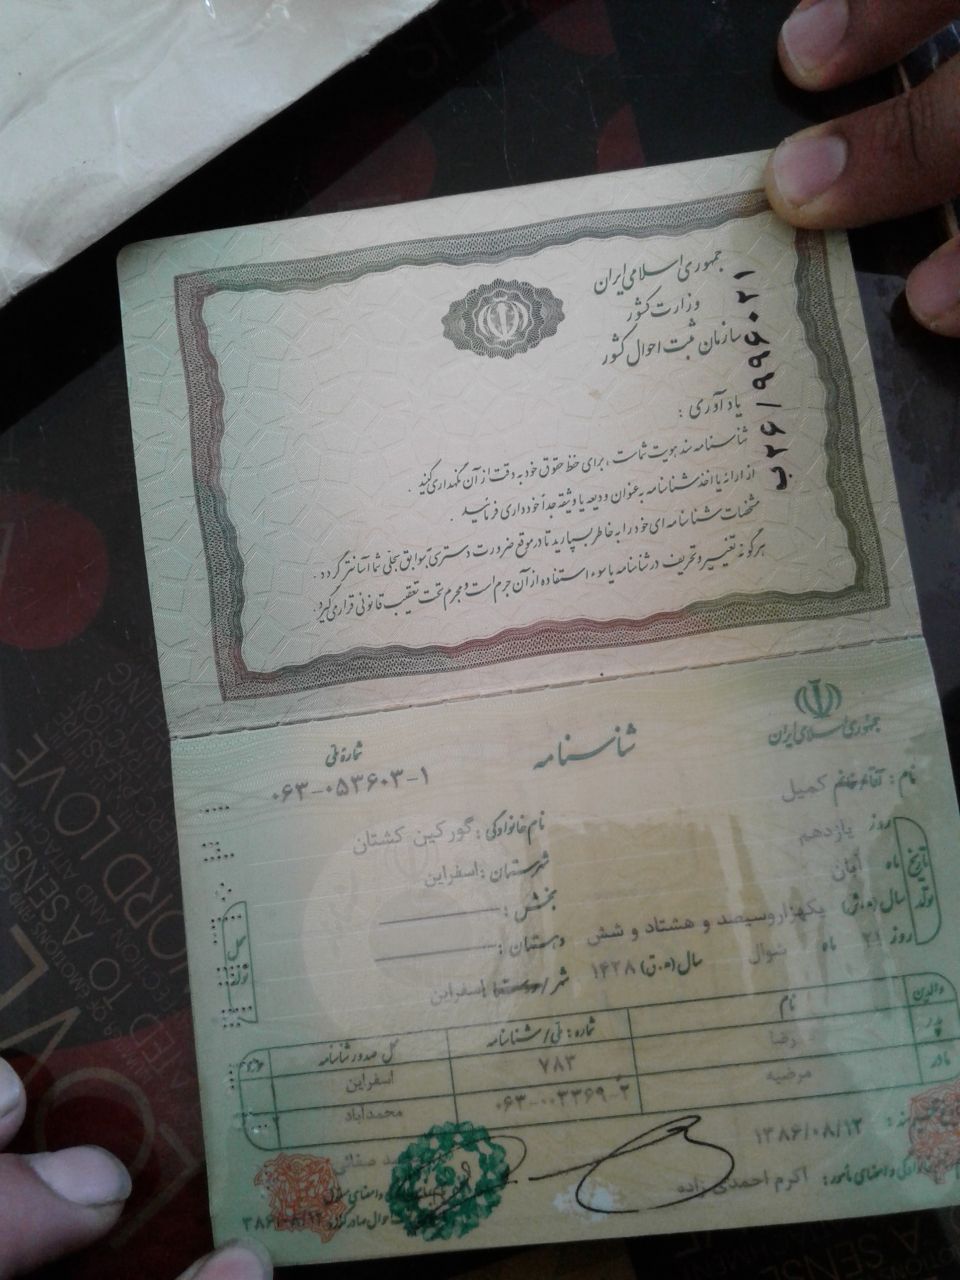 جمهوری اسلامی ایران
وزارت کشور
سازمان ثبت احوال کشور
ب۲۶/۹۹۶۰۲۱
یادآوری :
شناسنامه سند هویت شماست ، برای حفظ حقوق خود به دقت از آن نگهداری کنید .
از ارائه یا اخذ شناسنامه به عنوان ودیعه یا وثیقه جداً خودداری فرمائید .
مشخصات شناسنامه ای خود را به خاطر بسپارید تا در موقع ضرورت دسترسی به سوابق سجلی شما آسانتر گردد .
هرگونه تغییر و تحریف در شناسنامه یا سوء استفاده از آن جرم است و مجرم تحت تعقیب قانونی قرار می گیرد .
جمهوری اسلامی ایران
شناسنامه
شماره ملی
۰۶۳-۰۵۳۶۰۳-۱
نام : آقا/خانم کمیل
نام خانوادگی : گورکین کشتان
تاریخ تولد
روز یازدهم
ماه آبان
سال (ه.ش) یکهزاروسیصد و هشتاد و شش
روز ۲۱ ماه شوال سال (ه.ق) ۱۴۲۸
محل تولد
شهرستان : اسفراین
بخش :
دهستان :
شهر/روستا : اسفراین
والدین نام شماره : ملی/شناسنامه محل صدور شناسنامه
پدر رضا ۷۸۳ اسفراین
مادر مرضیه ۰۶۳-۰۰۳۳۶۹-۲ محمدآباد
تاریخ تنظیم سند : ۱۳۸۶/۰۸/۱۲
مأمور : اکرم احمدی زاده